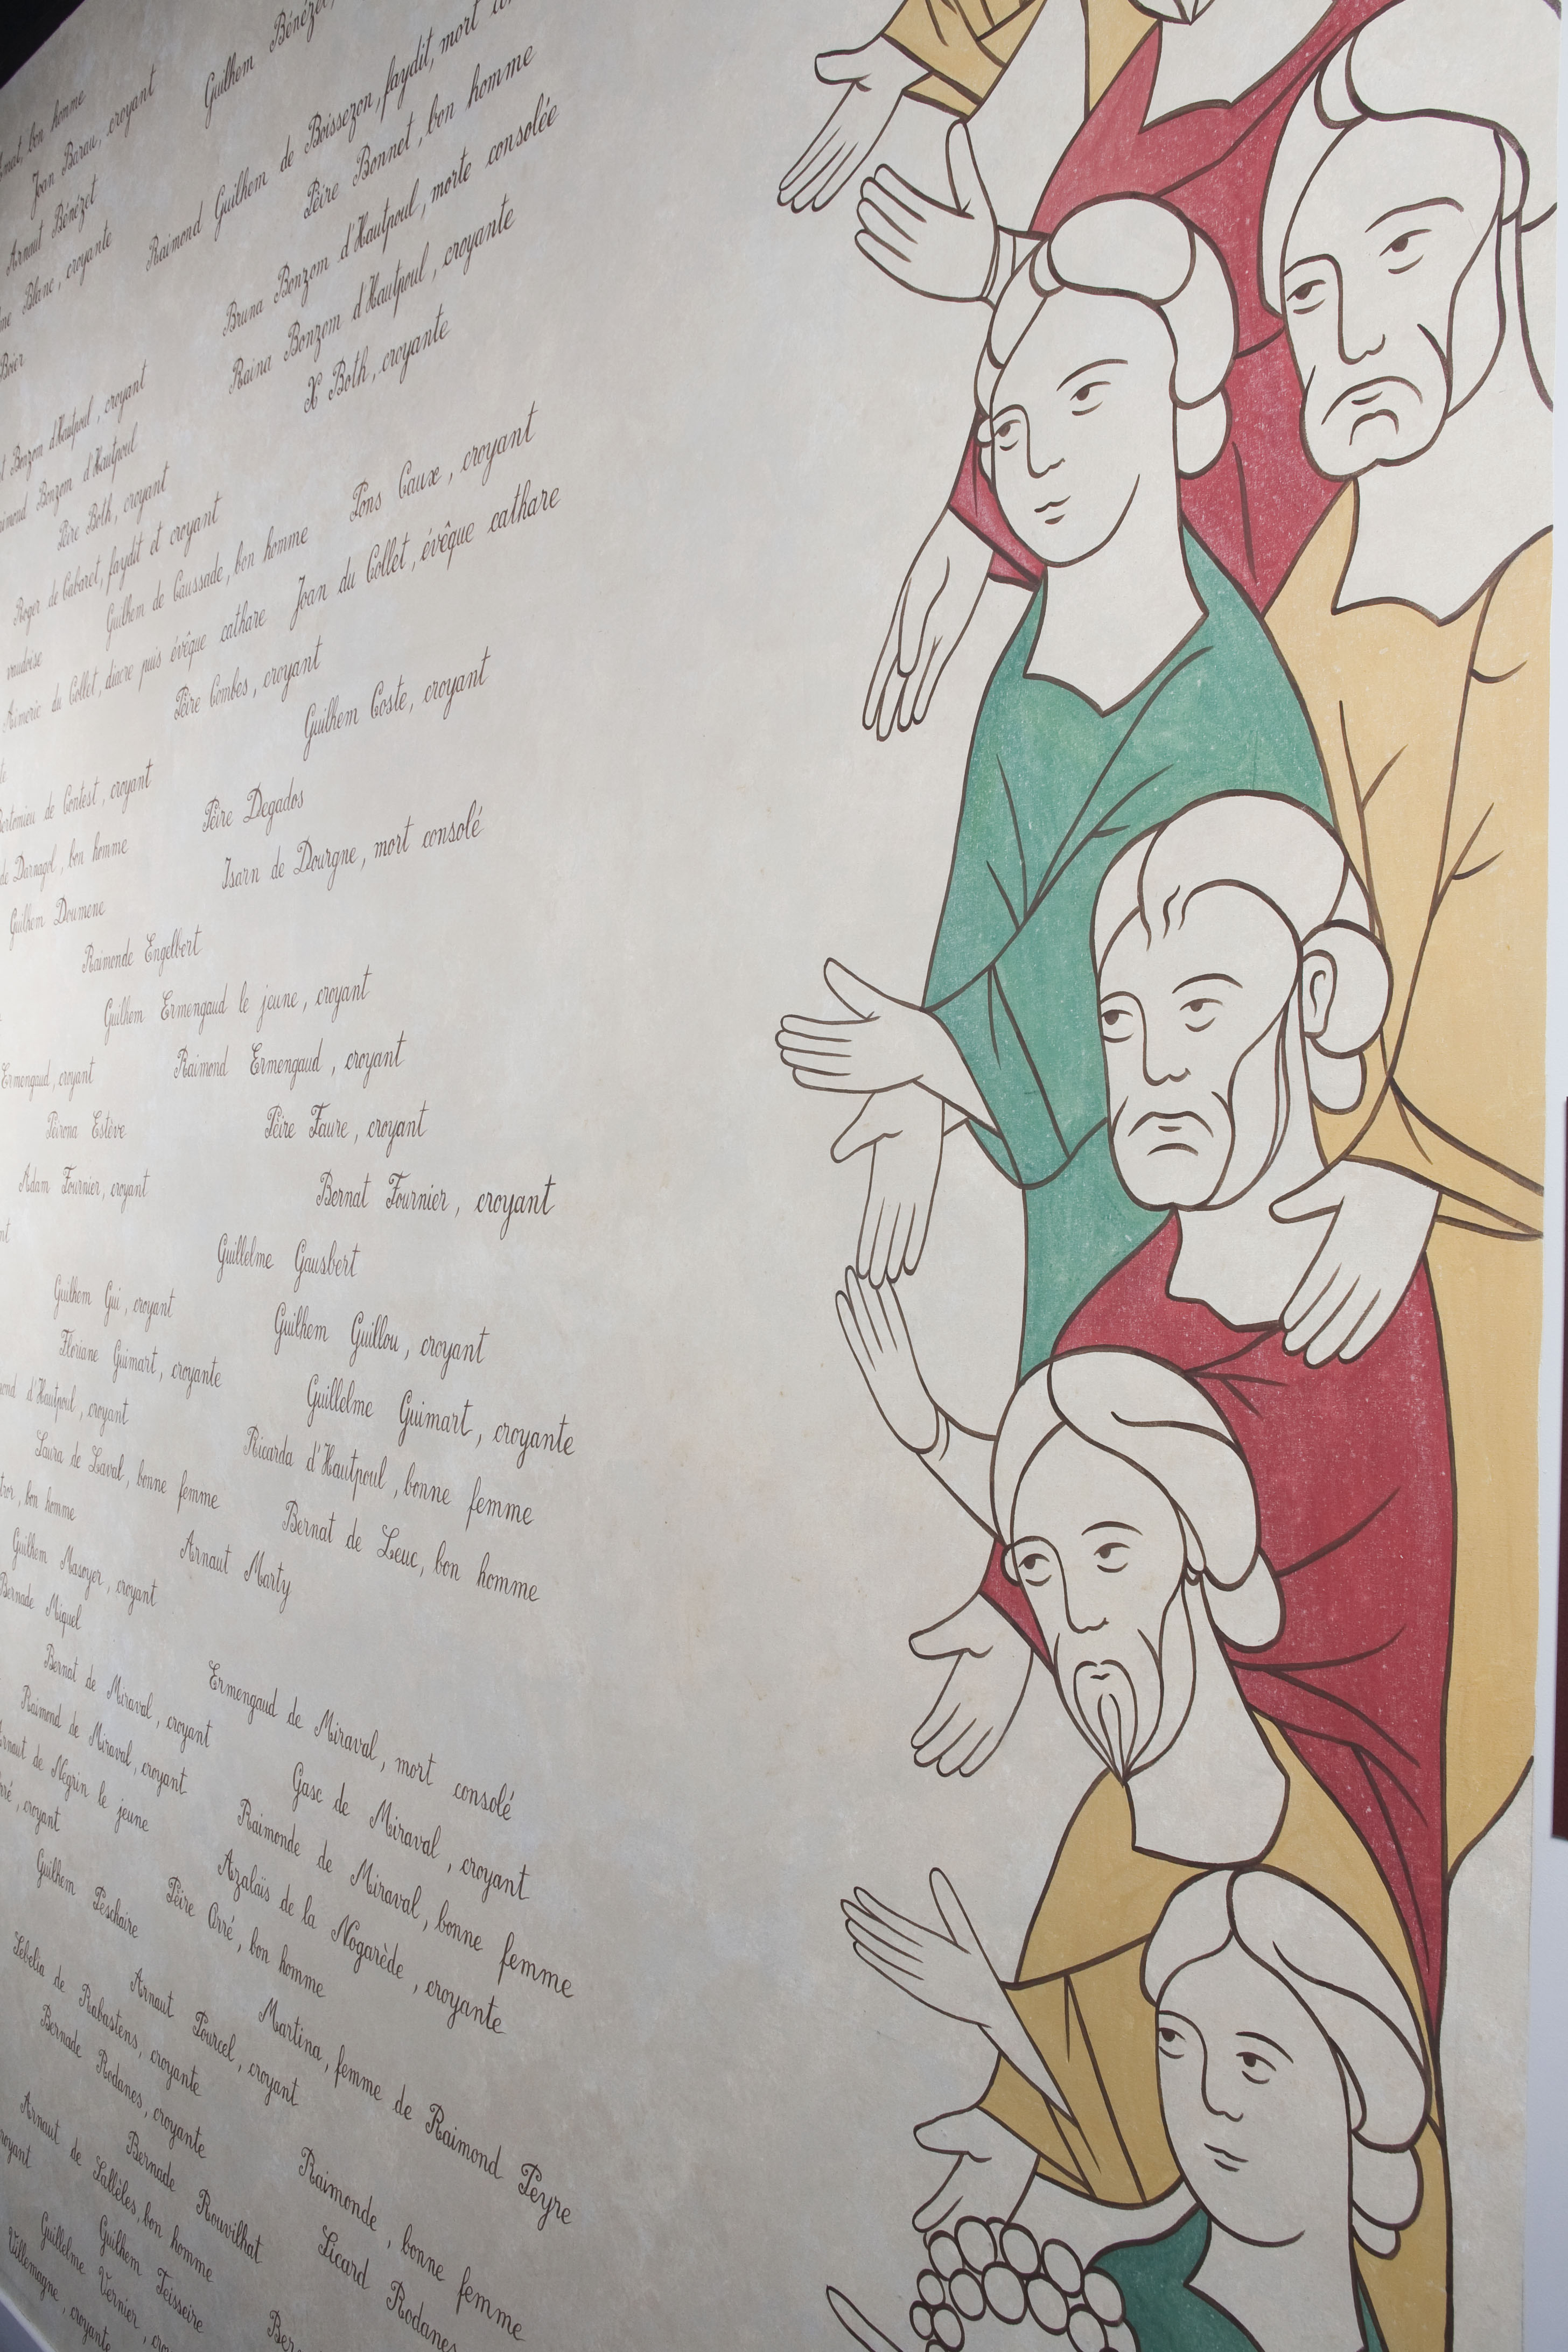 Guilhem Bénézet,
bon homme
Joan Barau, croyant
Raimond Guilhem de Boissezon, faydit, mort
Arnaut Bénézet
Pèire Bonnet, bon homme
Blanc, croyante
Bruna Bonzom d'Hautpoul, morte consolée
Boier
Raina Bonzom d'Hautpoul, croyante
Bonzom d'Hautpoul, croyant
X Both, croyante
Bonzom d'Hautpoul
Pèire Both, croyant
Roger de Cabaret, faydit et croyant
Guilhem de Caussade, bon homme Pons Caux, croyant
vaudoise
Aimeric du Collet, diacre puis évêque cathare Joan du Collet, évêque cathare
Pèire Combes, croyant
Guilhem Coste, croyant
de Contest, croyant
Pèire Degados
de Darnagol, bon homme
Isarn de Dourgne, mort consolé
Guilhem Doumenc
Raimonde Engelbert
Guilhem Ermengaud le jeune, croyant
Ermengaud, croyant Raimond Ermengaud, croyant
Peirona Estève Pèire Faure, croyant
Adam Fournier, croyant Bernat Fournier, croyant
Guillelme Gausbert
Guilhem Gui, croyant Guilhem Guillou, croyant
Floriane Guimart, croyante Guillelme Guimart, croyante
d'Hautpoul, croyant Ricarda d'Hautpoul, bonne femme
Laura de Laval, bonne femme Bernat de Leuc, bon homme
bon homme Arnaut Marty
Guilhem Masoyer, croyant
Bernade Miquel
Bernat de Miraval, croyant Ermengaud de Miraval, mort consolé
Raimond de Miraval, croyant Gasc de Miraval, croyant
Arnaut de Negrin le jeune Raimonde de Miraval, bonne femme
croyant Azalaïs de la Nogarède, croyante
Guilhem Peschaire Pèire Orré, bon homme
Martina, femme de Raimond Peyre
Arnaut Pourcel, croyant
de Rabastens, croyante Raimonde, bonne femme
Bernade Rodanes, croyante Sicard Rodanes
Bernade Rouvilhat
Arnaut de Sallèles, bon homme
Guilhem Teisseire
Guillelme Vernier,
Villemagne, croyante